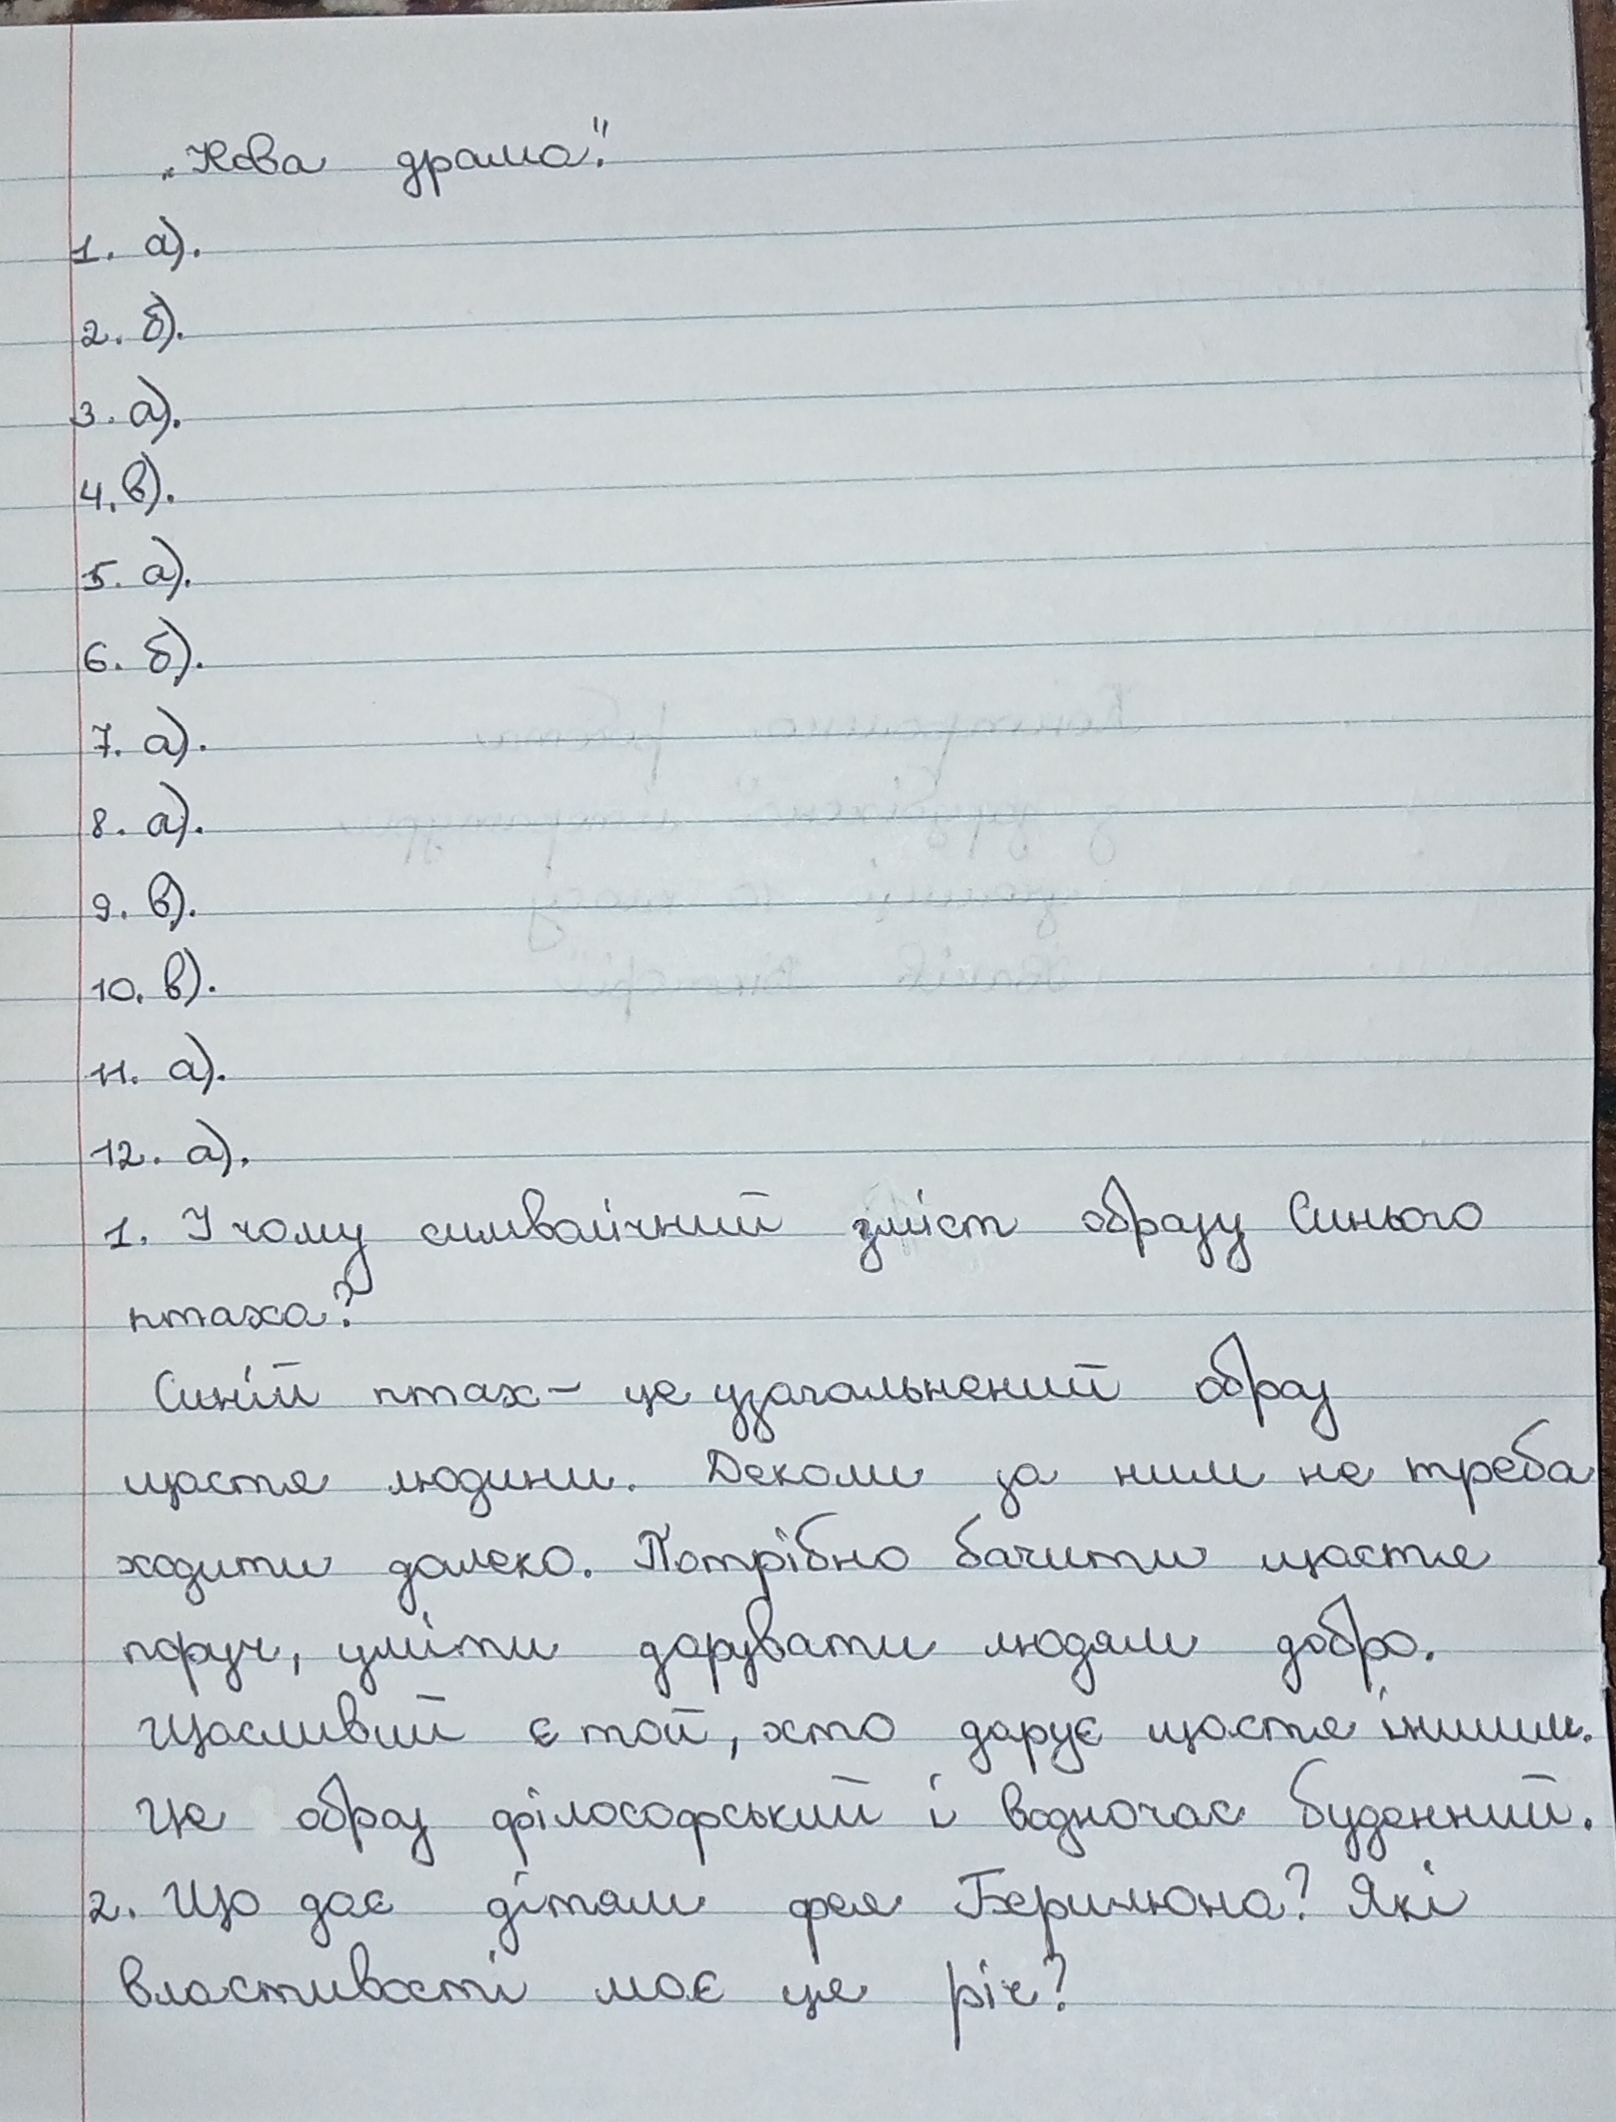 „Нова драма".
1. а).
2. б).
3. а).
4. в).
5. а).
6. б).
7. а).
8. а).
9. в).
10. в).
11. а).
12. а).
1. У чому символічний зміст образу Синього
птаха?
Синій птах – це узагальнений образ
щастя людини. Деколи за ним не треба
ходити далеко. Потрібно бачити щастя
поруч, уміти дарувати людям добро.
Щасливий є той, хто дарує щастя іншим.
Це образ філософський і водночас буденний.
2. Що дає дітям фея Берилюна? Які
властивості має це річ?